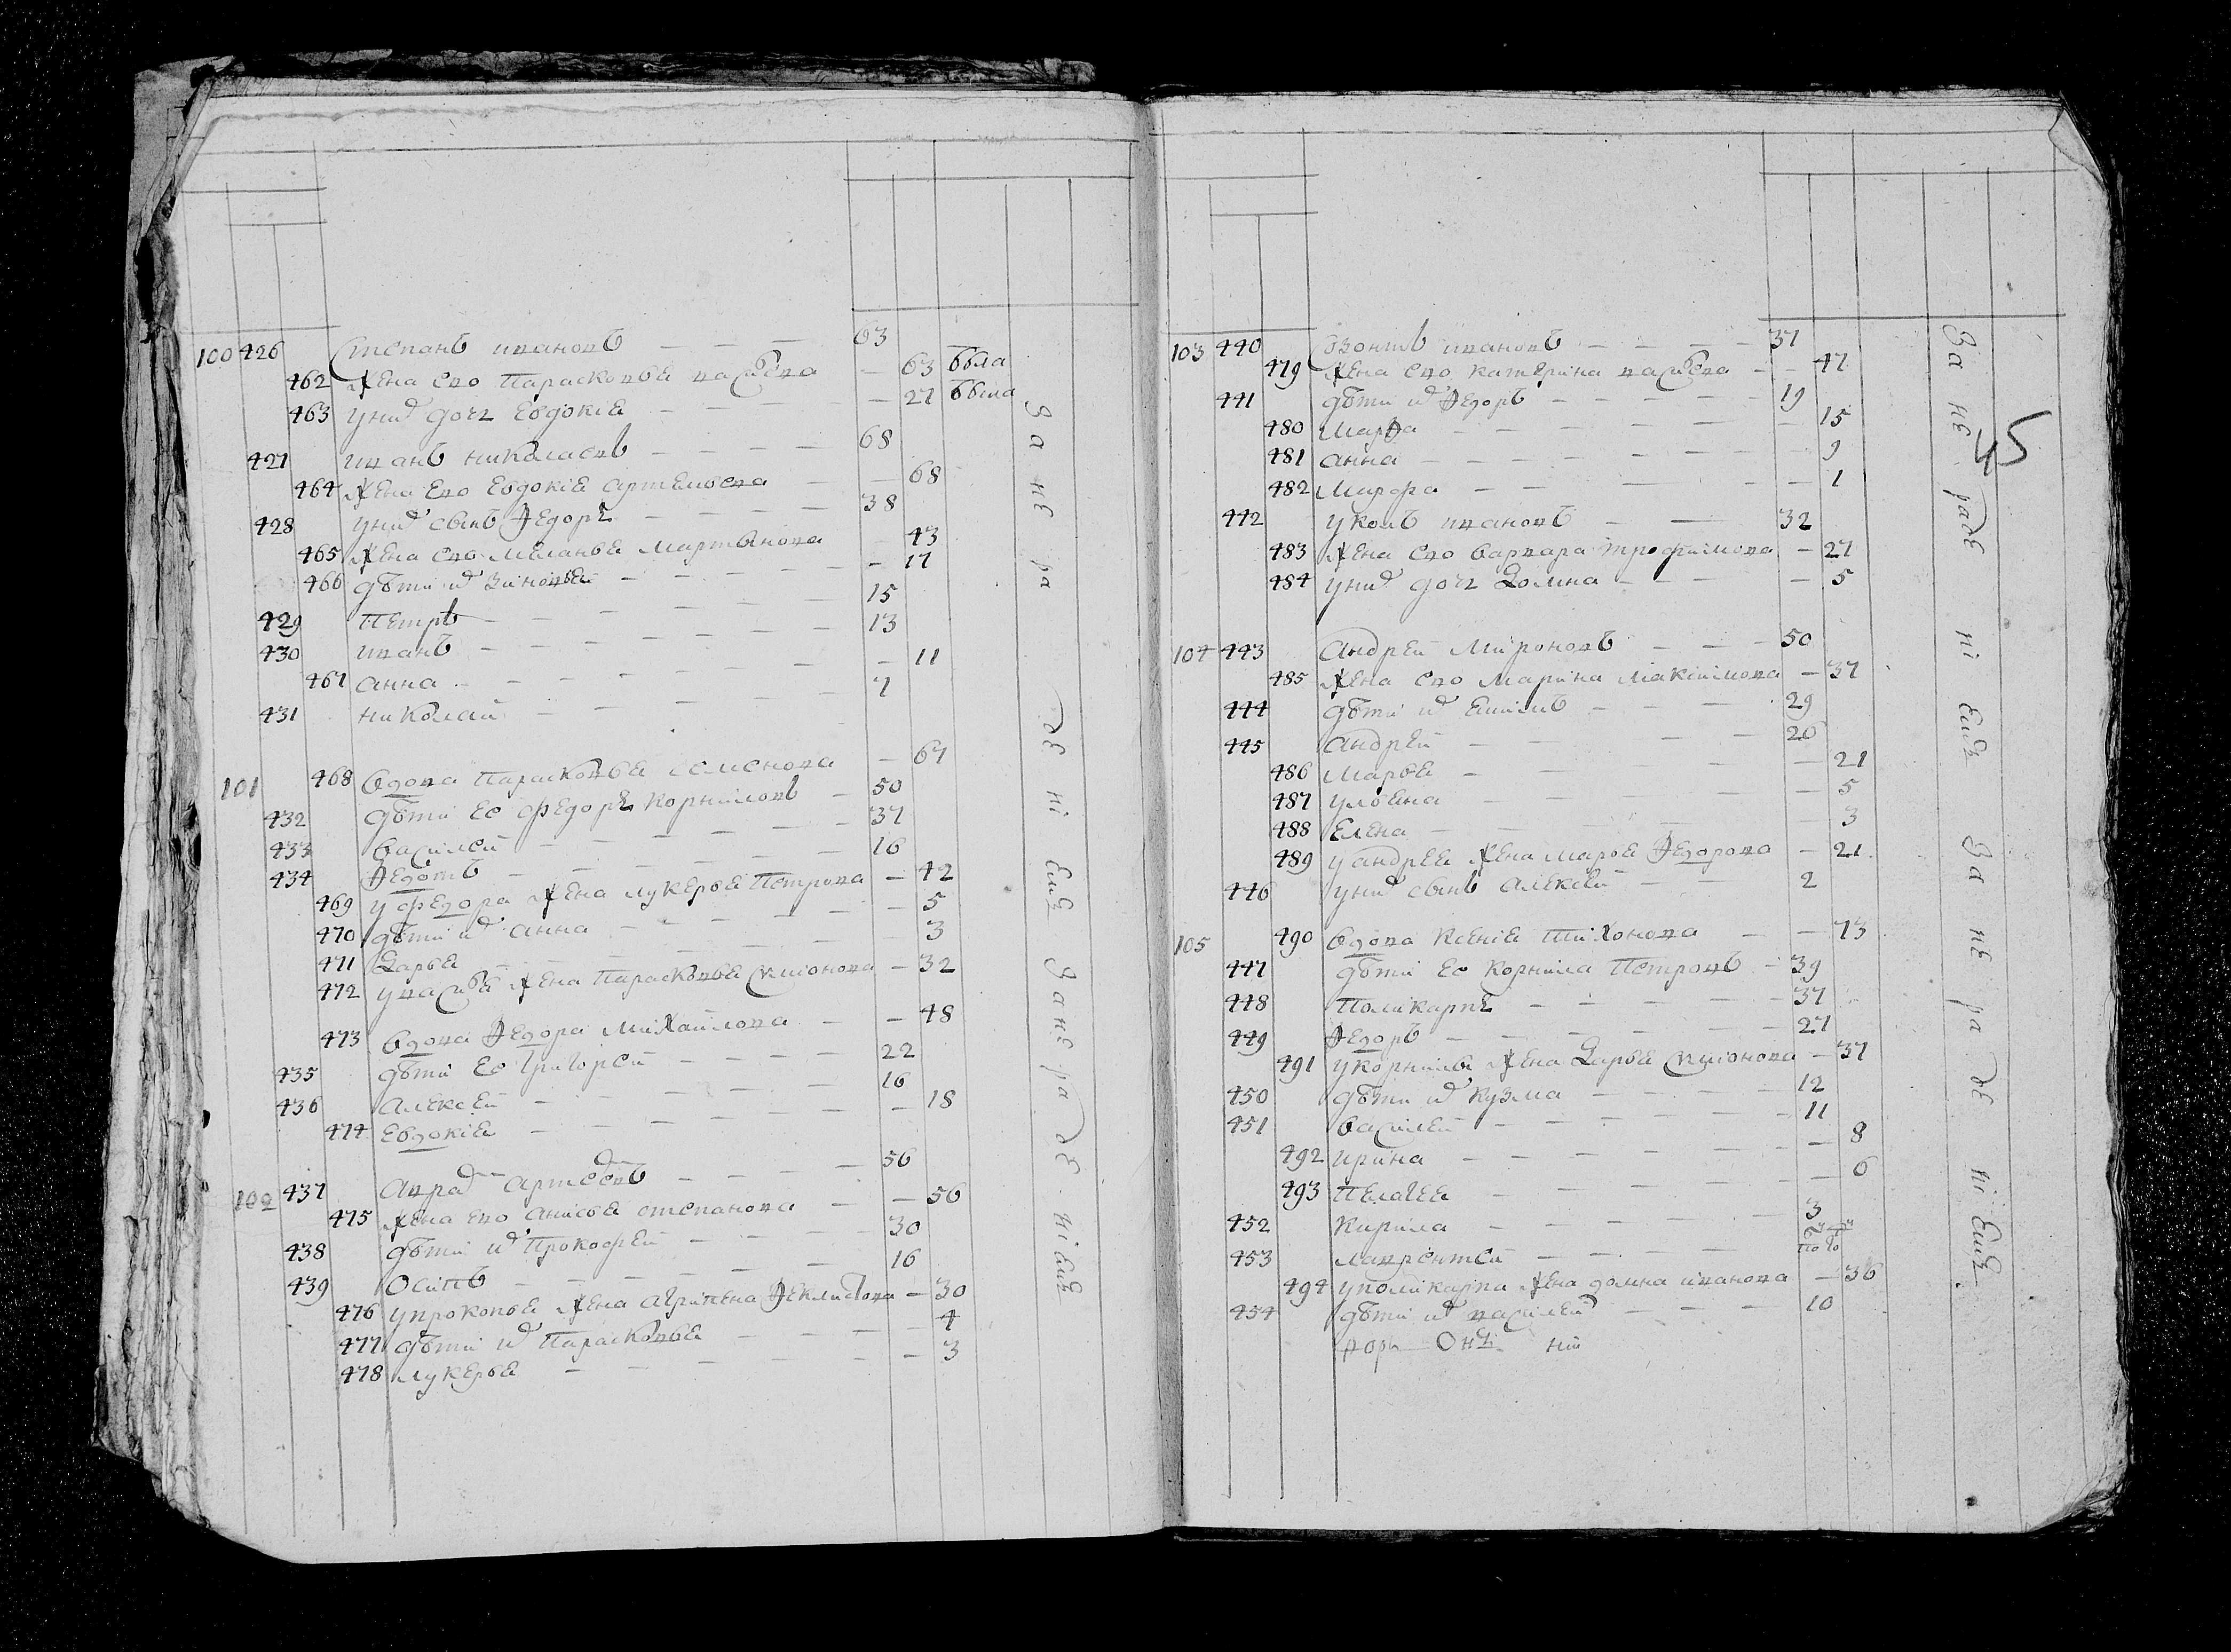 100 426 Степанъ ивановъ — — — 63
462 Жена ево Парасковья васильева — 63 была
463 у них дочь Евдокия — — — — 27 была
427 иванъ николаевъ — — — — 68
464 Жена Ево Евдокия артемьева — 68
428 у них сынъ Федоръ — — — — 38
465 Жена ево Меланья Мартынова — 43
466 дѣти их Зиновья — — — — 17
429 Петръ — — — — 15
430 иванъ — — — — 13
467 анна — — — — 11
431 николай — — — — 7
101 468 вдова Парасковья Семенова — 67
432 дѣти Ее Федоръ Корниловъ — 50
433 василей — — — — 37
434 Федотъ — — — — 16
469 у Федора Жена лукерья Петрова — 42
470 дѣти их анна — — — — 5
471 Дарья — — — — 3
472 у васи Жена Парасковья — 32
473 вдова Федора Михайлова — — 48
435 дѣти Ее Григорей — — — — 22
436 алексей — — — — 16
474 Евдокия — — — — 18
102 437 — — — 56
475 Жена Ево анисья степанова — — 56
438 дѣти их Прокофей — — — 30
439 Осипъ — — — — 16
476 у прокопья Жена агрипена — 30
477 дѣти их Парасковья — — — 4
478 лукерья — — — — 3
За не ра де ни ем За не ра де ни ем
103 440 ивановъ — — — 37
479 Жена ево катерина васильева — — 47
441 дѣти их Федоръ — — — — 19
480 Марфа — — — — 15
481 анна — — — — 9
482 — — — — 1
442 ивановъ — — 32
483 Жена ево варвара трофимова — 27
484 у них дочь Домна — — — — 5
104 443 андрей Мироновъ — — — 50
485 Жена ево Марина Максимова — 37
444 дѣти их — — — 29
445 андрей — — — — 20
486 Марья — — — — 21
487 ульяна — — — — 5
488 Елена — — — — 3
489 у андрея Жена марья Федорова — 21
446 у них сынъ алексей — — 2
105 490 вдова Ксения Тихонова — — 73
447 дѣти Ее корнила Петровъ — 39
448 Поликарпъ — — — — 37
449 Федоръ — — — — 27
491 у корнилы Жена Дарья — 37
450 дѣти их кузма — — — — 12
451 василей — — — — 11
492 ирина — — — — 8
493 Пелагея — — — — 6
452 кирила — — — — 3
453 лаврентей — — — — по го
494 у поликарпа Жена домна иванова — 36
454 дѣти их василей — — — 10
За не раде ни ем За не ра де ни ем
45